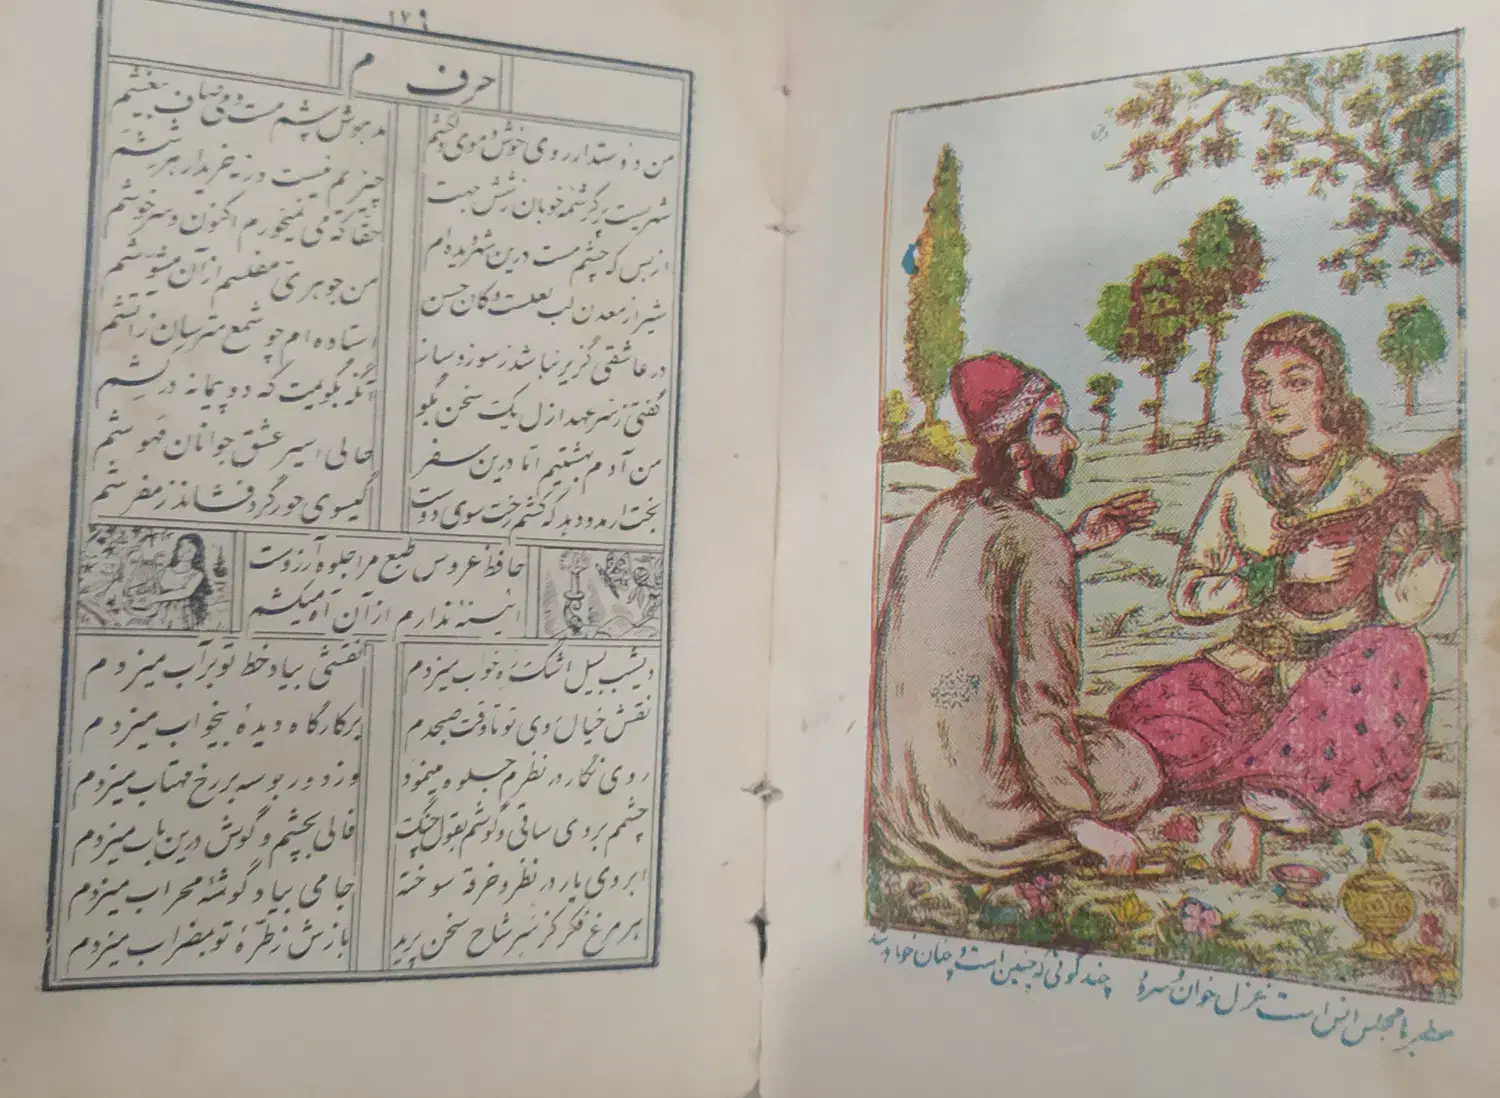 ۱۷۹
حرف م
من دوستدار روی خوش و موی دلکشم مدهوش چشم مست و می صاف بیغشم
شهریست پر کرشمه خوبان ز شش جهت چیزیم نیست ورنه خریدار هر ششم
از بس که چشم مست درین شهر دیده ام حقا که می نمیخورم اکنون و سرخوشم
شیراز معدن لب لعلست و کان حسن من جوهری مفلسم از آن مشوشم
در عاشقی گزیر نباشد ز سوز و ساز استاده ام چو شمع مترسان ز آتشم
گفتی ز سر عهد ازل یک سخن بگو آنگه بگویمت که دو پیمانه درکشم
من آدم بهشتیم اما درین سفر حالی اسیر عشق جوانان مهوشم
بخت ار مدد دهد که کشم رخت سوی دوست گیسوی حور گرد فشاند ز مفرشم
حافظ عروس طبع مرا جلوه آرزوست
آئینهٔ ندارم از آن آه میکشم
دیشب بسیل اشک ره خواب میزدم نقشی بیاد خط تو بر آب میزدم
نقش خیال روی تو تا وقت صبحدم بر کارگاه دیدهٔ بیخواب میزدم
روی نگار در نظرم جلوه مینمود وز دور بوسه بر رخ مهتاب میزدم
چشمم بروی ساقی و گوشم بقول چنگ فالی بچشم و گوش درین باب میزدم
ابروی یار در نظر و خرقه سوخته جامی بیاد گوشهٔ محراب میزدم
هر مرغ فکر کز سر شاخ سخن پرید بازش ز طرهٔ تو بمضراب میزدم
مطربا مجلس انس است غزل خوان و سرود چند گوئی که چنین است و چنان خواهد شد